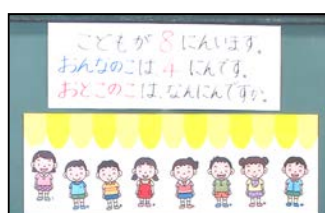 こどもが 8 にんいます。
おんなのこは 4 にんです。
おとこのこは、なんにんですか。